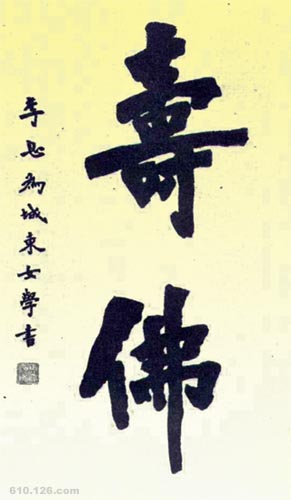 壽佛
李息為城東女學書
610.126.com